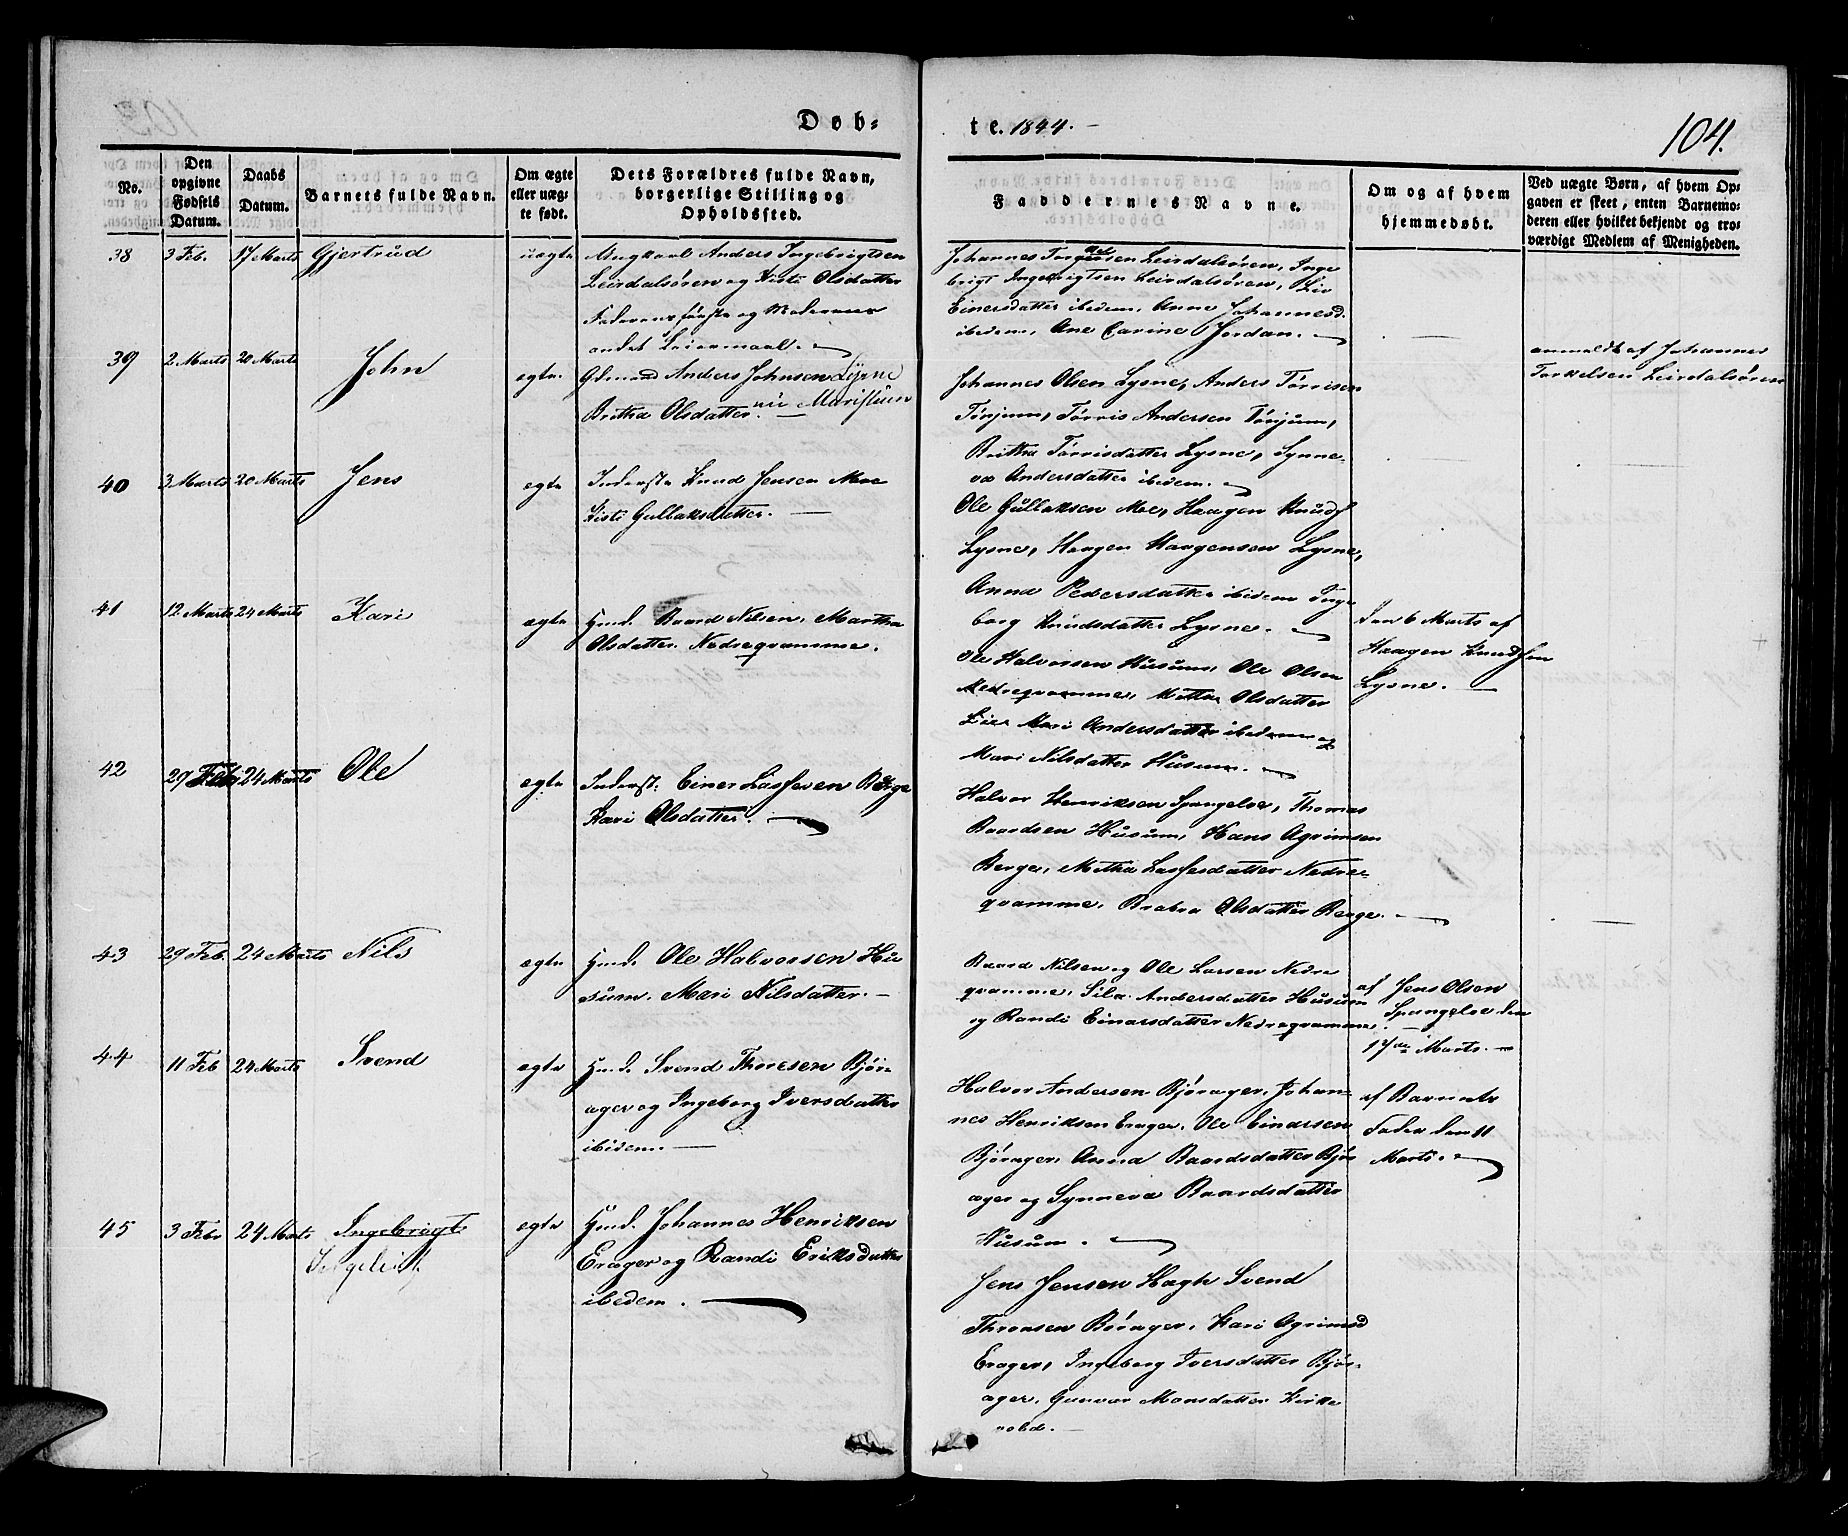 Døb-
te. 1844. -
104.
No.
Den
opgivne
Fødsels
Datum.
Daabs
Datum.
Barnets fulde Navn.
Om ægte
eller uæg-
te født.
Dets Forældres fulde Navn,
borgerlige Stilling og
Opholdssted.
Faddernes Navne.
Om og af hvem
hjemmedøbt.
Ved uægte Børn, af hvem Op-
gaven er skeet, enten Barnemo-
deren eller hvilket bekjendt og tro-
værdigt Medlem af Menigheden.
38 3 Feb. 17 Marts Gjertrud uægte
Ungkarl Anders Ingebrigtsen
Leirdalsøren og Kisti Olsdatter
Faderens første og Moderens
andet Leiermaal.
Johannes Leirdalsøren, Inge
brigt Ingebrigtsen Leirdalsøren, Liv
Einersdatter ibidem, Anne Johannesd.
ibidem, Ane Carine Jordan.
anmeldt af Johannes
Torkelsen Leirdalsøren
39 2 Marts 20 Marts John ægte.
Gdmand Anders Johnsen Lysne
Britha Olsdatter. nu Maristuen
Johannes Olsen Lysne, Anders Tørrisen
Tønjum, Tørris Andersen Tønjum,
Britha Tørrisdatter Lysne, Synne-
va Andersdatter ibidem.
40 3 Marts 20 Marts Jens ægte
Inderste Knud Jensen Moe
Kisti Gullaksdatter.
Ole Gullaksen Moe, Haagen Knuds
Lysne, Haagen Haagensen Lysne,
Anna Pedersdatter ibidem Inge
borg Knudsdatter Lysne.
den 6 Marts af
Haagen Knudssen
Lysne.
41 12 Marts 24 Marts Kari ægte
Gmd. Baard Nilsen, Martha
Olsdatter Nedreqvamme.
Ole Halvorsen Husum, Ole Olsen
Nedreqvamme, Metha Olsdatter
Mari Andersdatter ibidem og
Mari Nilsdatter Husum.
42 29 Feb 24 Marts Ole ægte
Inderst: Einer Lassesen Berge
Kari Olsdatter.
Halvor Henriksen Spangelse, Thomas
Baardsen Husum, Hans Agrimsen
Berge, Metha Lassesdatter Nedre-
qvamme, Brabra Olsdatter Berge.
43 29 Feb. 24 Marts Nils ægte
Gmd. Ole Halvorsen Hu
sum. Mari Nilsdatter.
Baard Nilsen og Ole Larsen Nedre
qvamme, Sila Andersdatter Husum
og Randi Einarsdatter Nedreqvamme.
af Jens Olsen
Spangelse den
17de Marts.
44 11 Feb 24 Marts Svend ægte
Gmd. Svend Thoresen Bjør-
ager og Ingeborg Iversdatter
ibidem.
Halvor Andersen Bjørager, Johan-
nes Henriksen Erager, Ole Einarsen
Bjørager, Anna Baardsdatter Bjør
ager og Synneva Baardsdatter
Husum.
af Barnets
Fader den 11
Marts.
45 3 Feb 24 Marts Ingebrigt ægte
Gmd. Johannes Henriksen
Erager og Randi Eriksdatter
ibedem.
Jens Jensen Hægh Svend
Thoresen Børager, Kari Agrimsd
Erager, Ingeborg Iversdatter Bjør-
ager, Gunvor Monsdatter Kirke
vold.